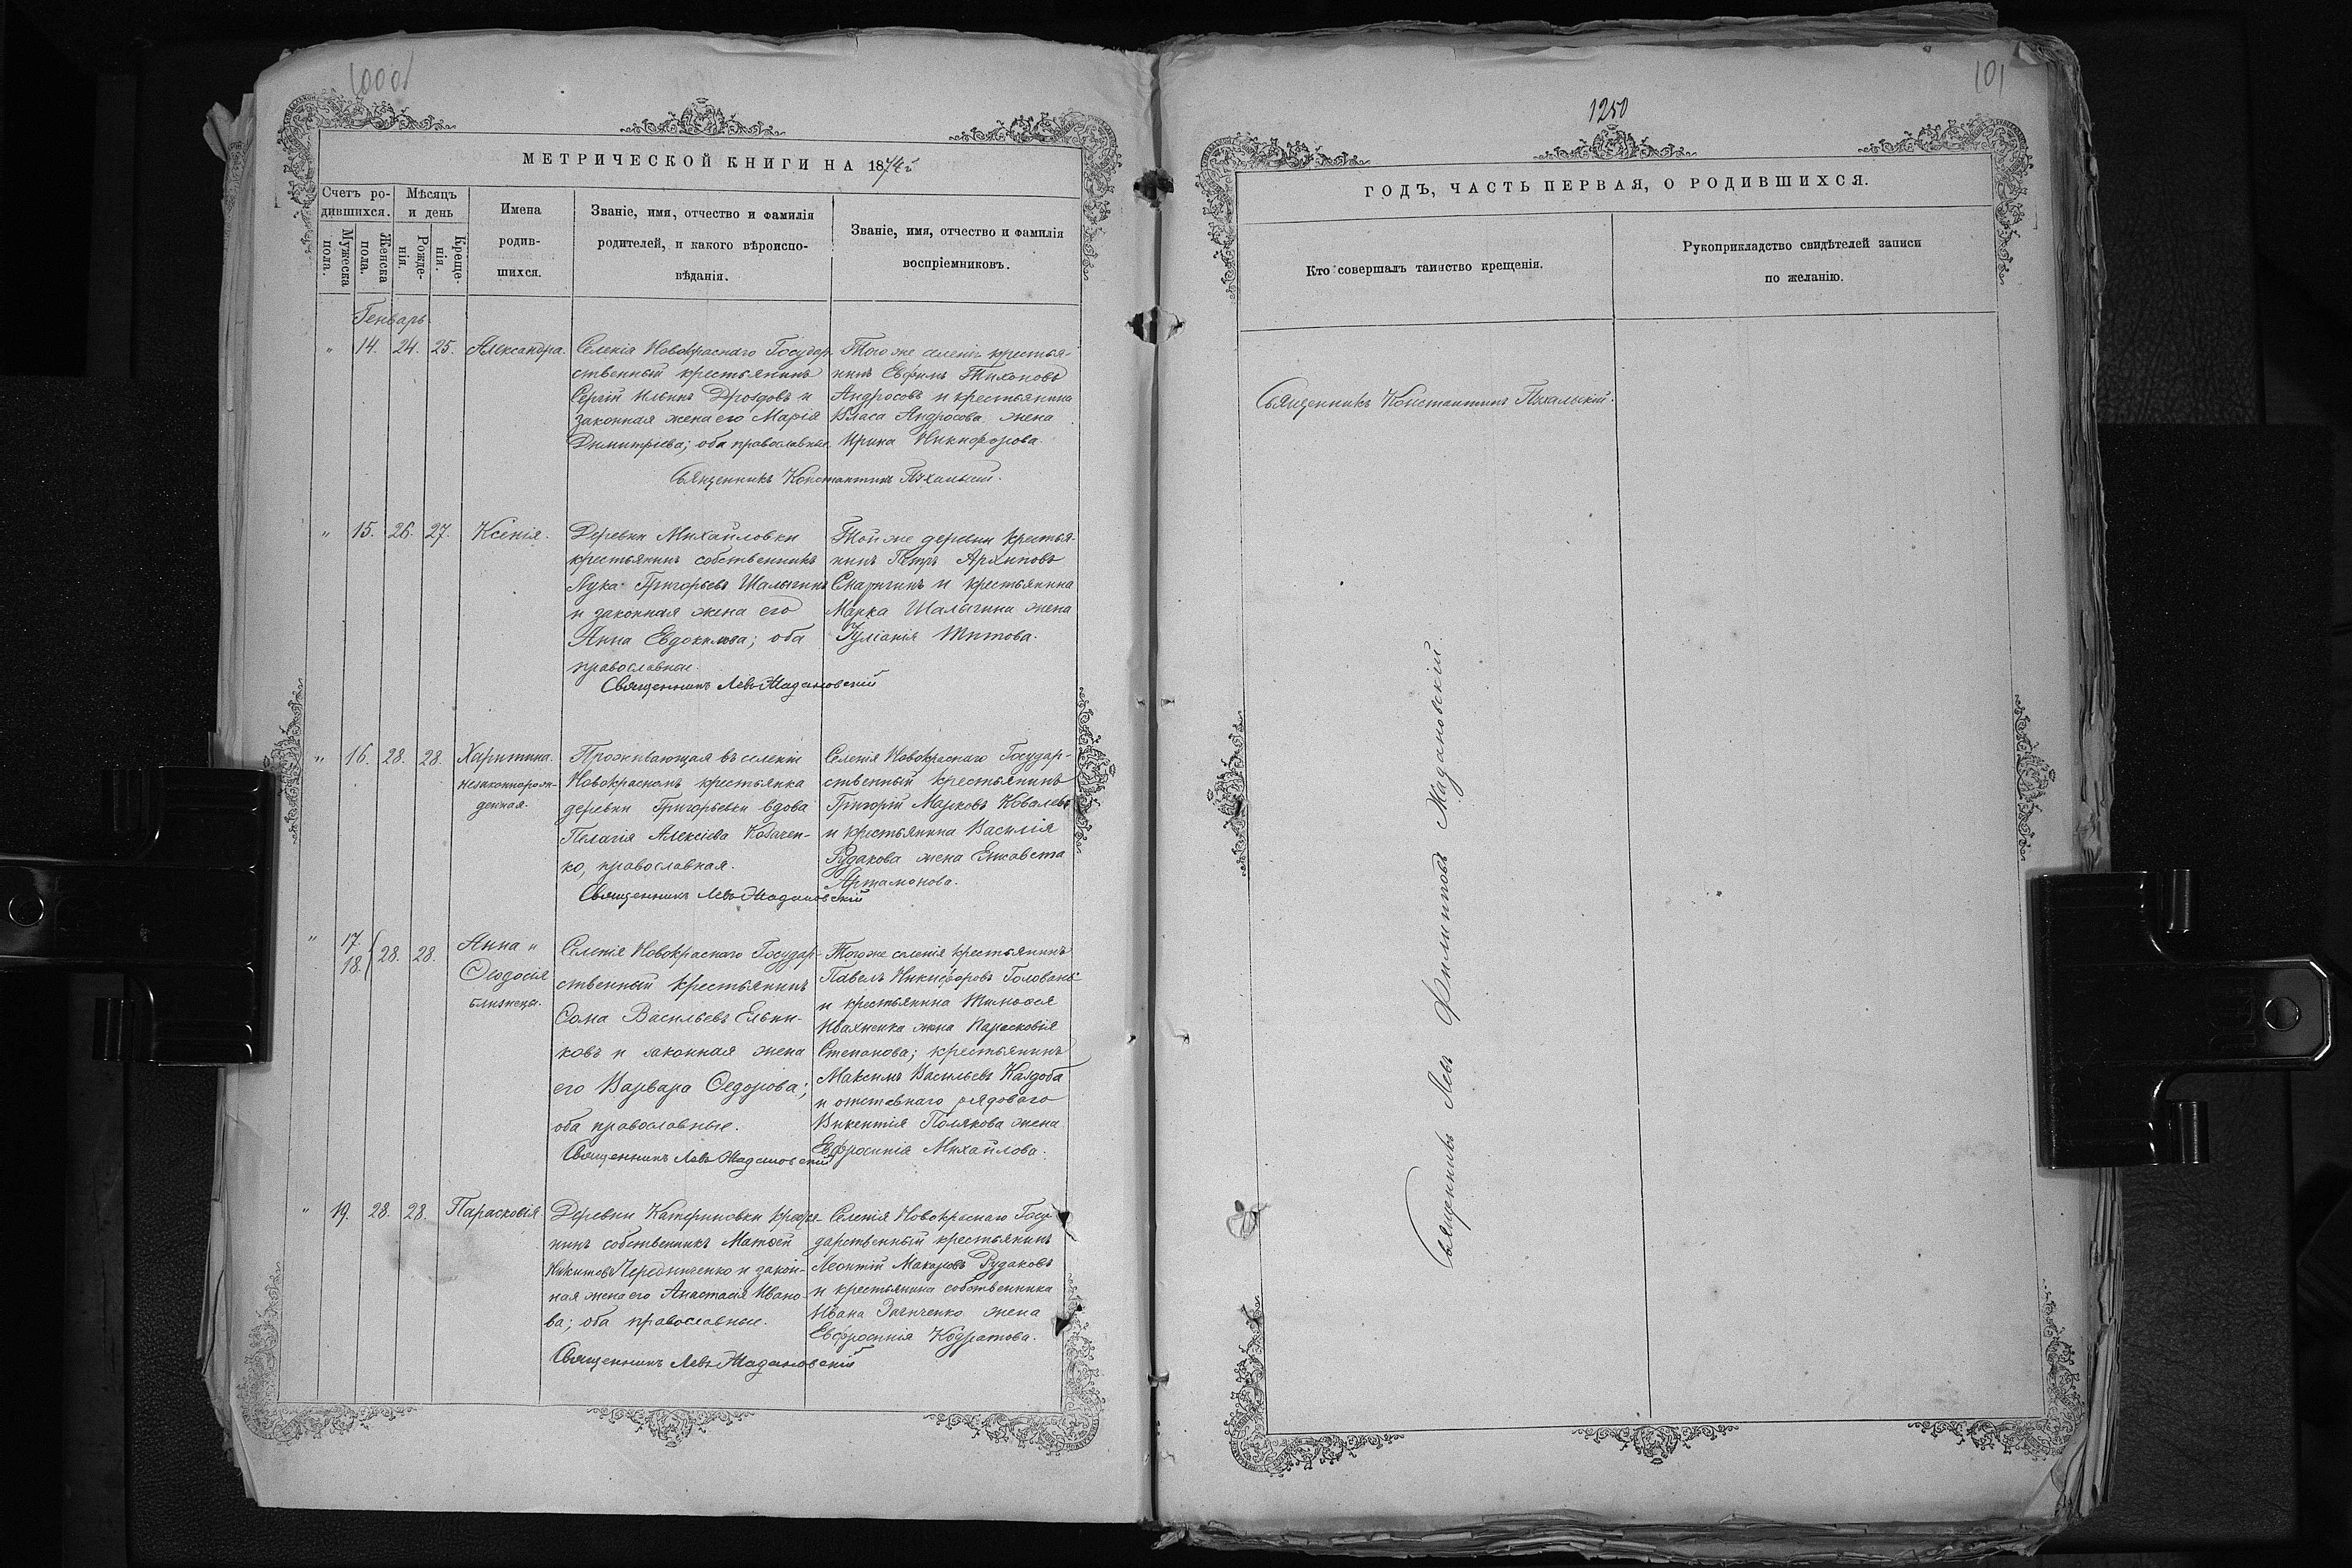 1000
МЕТРИЧЕСКОЙ КНИГИ НА 1874й
Счетъ ро-
дившихся.
Мужеска пола.
Женска пола.
Мѣсяцъ
и день
Рожде-
нія.
Креще-
нія.
Имена
родив-
шихся.
Званіе, имя, отчество и фамилія
родителей, и какого вѣроиспо-
вѣданія.
Званіе, имя, отчество и фамилія
воспріемниковъ.
Генварь
" 14. 24. 25. Александра.
Селенія Новокраснаго Государ-
ственный крестьянинъ
Сергій Ильинъ Дроздовъ и
законная жена его Марія
Димитріева; оба православные.
Того же селенія крестья-
нинъ Евфимъ Тихоновъ
Андросовъ и крестьянина
Власа Андросова жена
Ирина Никифорова
Священникъ Константинъ
" 15. 26. 27. Ксенія.
Деревни Михайловки
крестьянинъ собственникъ
Лука Григорьевъ Шалыгинъ
и законная жена его
Анна Евдокимова; оба
православные.
Той же деревни крестья-
нинъ Петръ Архиповъ
и крестьянина
Марка Шалыгина жена
Іуліанія Титова.
Священникъ Левъ Жадановскій
" 16. 28. 28. Харитина.
незаконнорож-
денная.
Проживающая въ селеніи
Новокрасномъ крестьянка
деревни Григорьевки вдова
Пелагія Алексіева Козачен-
ко, православная.
Селенія Новокраснаго Государ-
ственный крестьянинъ
Григорій Марковъ Ковалевъ
и крестьянина Василія
Рудакова жена Елисавета
Артамонова.
Священникъ Левъ Жадановскій
" 17. 18. 28. 28. Анна "
Ѳеодосія
близнецы.
Селенія Новокраснаго Государ-
ственный крестьянинъ
Ѳома Васильевъ Ельни-
ковъ и законная жена
его Варвара Ѳедорова;
оба православные.
Того же селенія крестьянинъ
Павелъ Никифоровъ Головань
и крестьянина Тимоѳея
Ивахненка жена Парасковія
Степанова; крестьянинъ
Максимъ Васильевъ
и отставнаго рядоваго
Викентія Полякова жена
Евфросинія Михайлова.
Священникъ Левъ Жадановскій
" 19. 28. 28. Парасковія
Деревни Катериновки крестья-
нинъ собственникъ Матѳей
Никитовъ Чередниченко и закон-
ная жена его Анастасія Ивано-
ва; оба православные.
Селенія Новокраснаго Госу-
дарственный крестьянинъ
Леонтій Макаровъ Рудаковъ
и крестьянина собственника
Ивана жена
Евфросинія Кодратова.
Священникъ Левъ Жадановскій
101
1250
ГОДЪ, ЧАСТЬ ПЕРВАЯ, О РОДИВШИХСЯ.
Кто совершалъ таинство крещенія.
Рукоприкладство свидѣтелей записи
по желанію.
Священникъ Константинъ
Священникъ Левъ Филипповъ Жадановскій